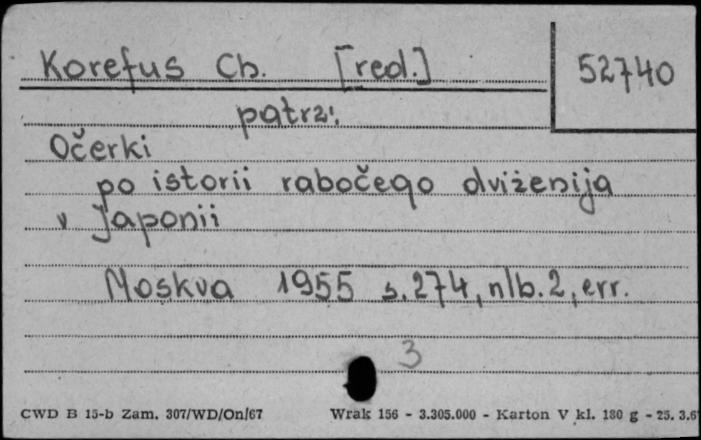 Korefus Ch. [red.] 52740
patrz:
Očerki
po istorii rabočego dviženija
v Japonii
Moskva 1955 s. 274, nlb. 2, err.
3
CWD B 15-b Zam. 307/WD/On/67 Wrak 156 - 3.305.000 - Karton V kl. 180 g - 25. 3.6